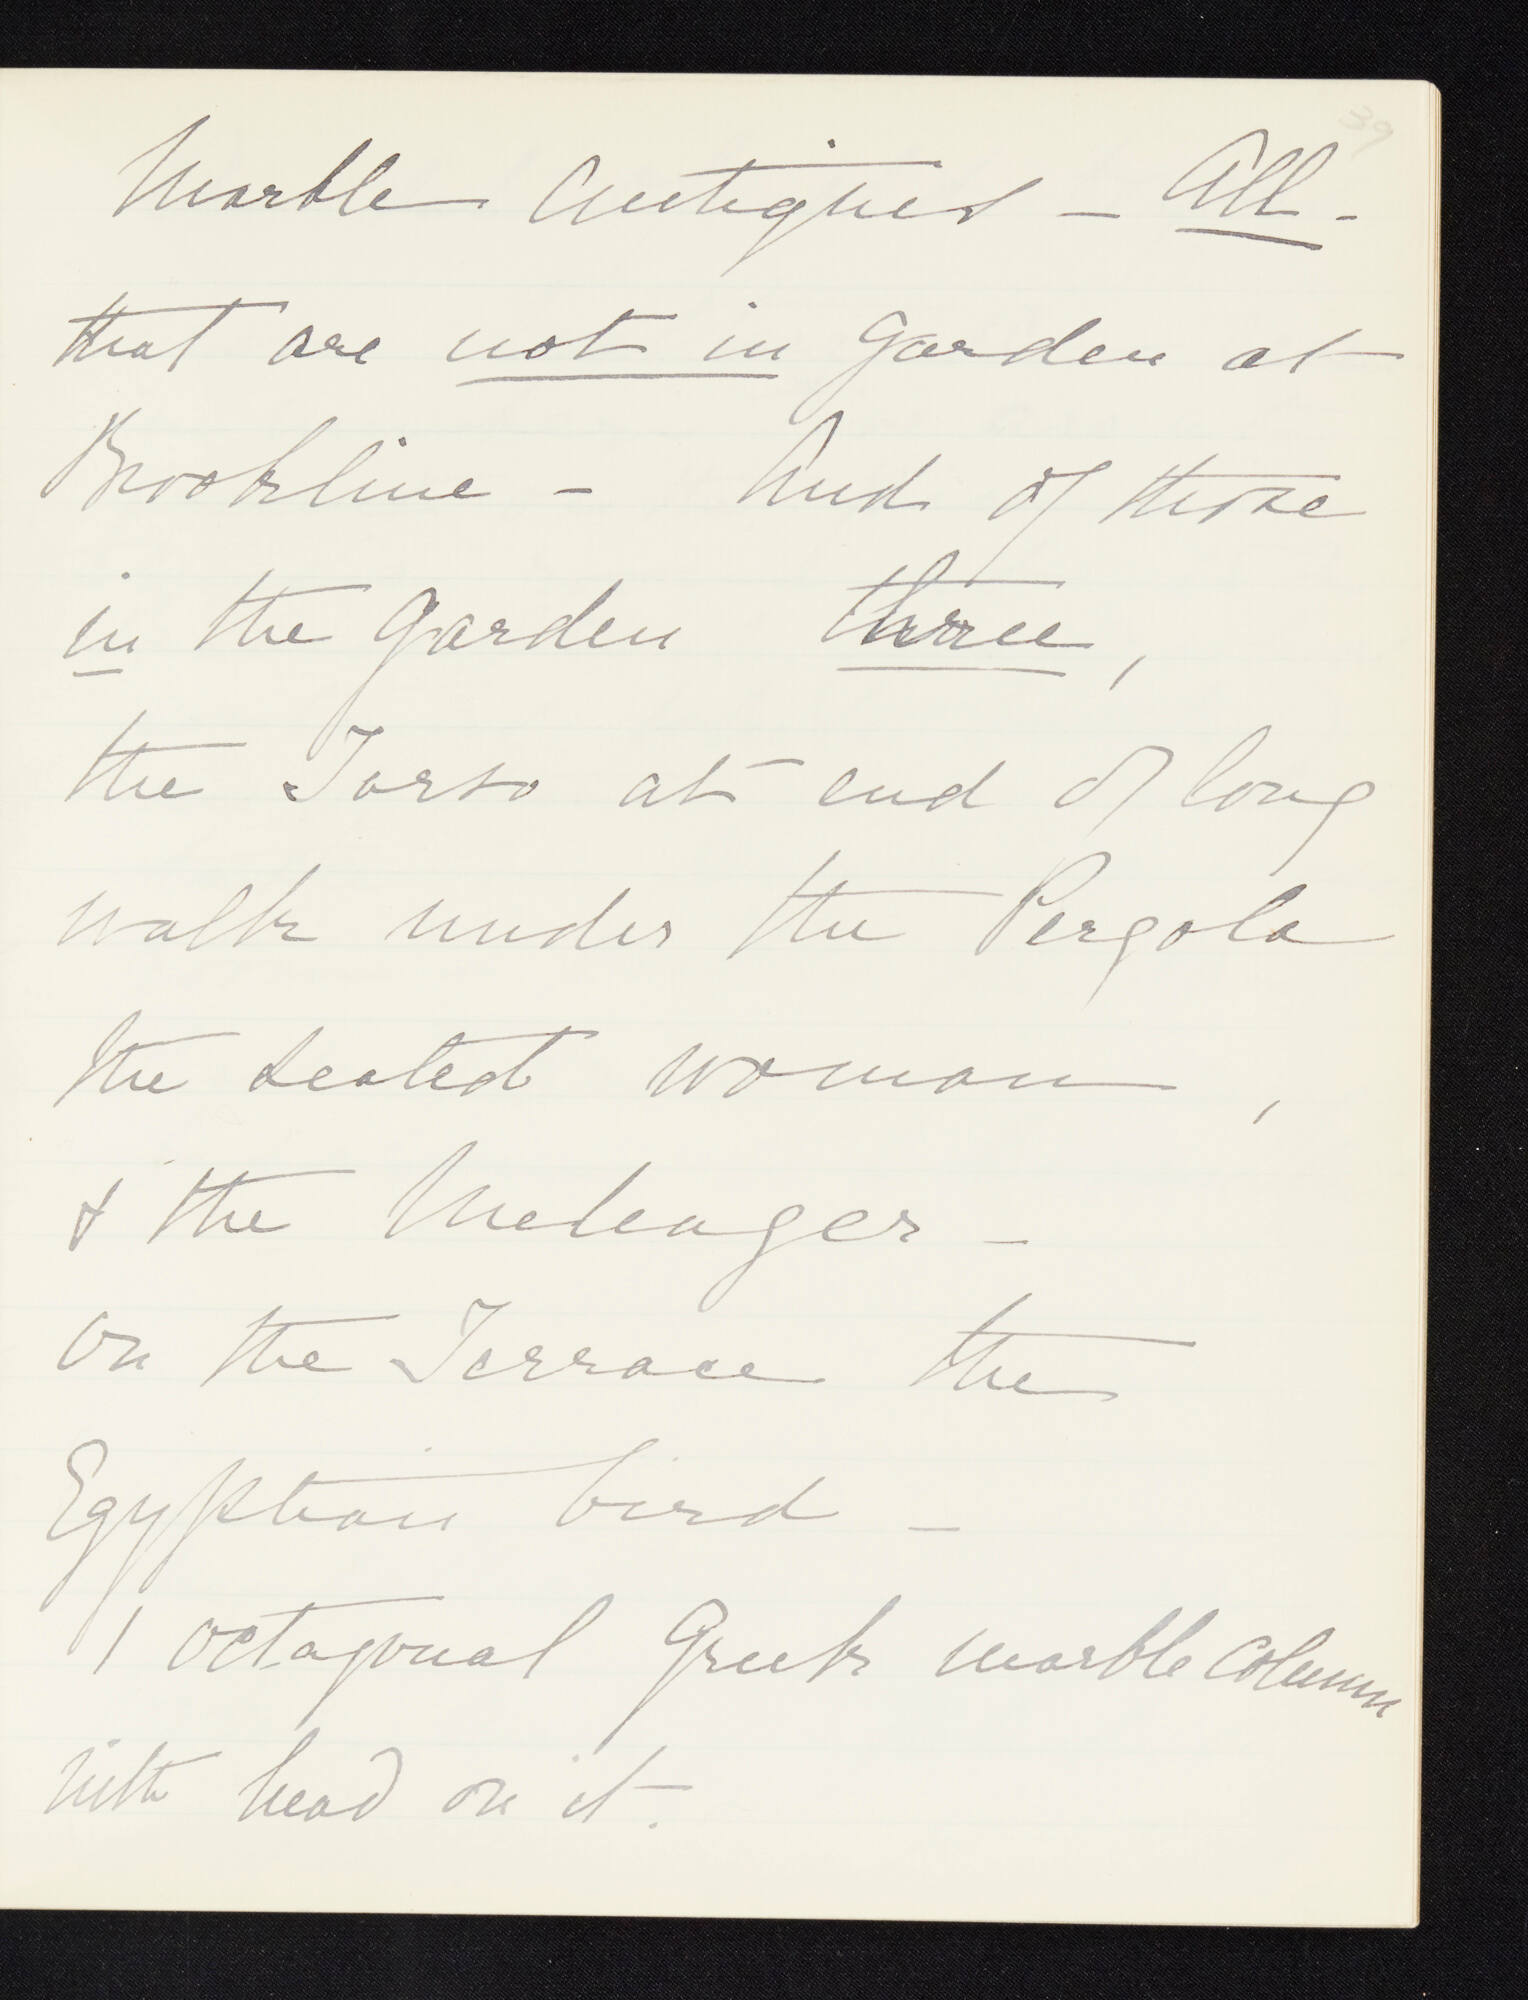 39
Marble Antiques - All -
that are not in garden at
Brookline - And of those
in the garden three,
the Torso at end of long
walk under the Pergola
the seated woman,
& the Meleager -
on the Terrace the
Egyptian bird -
1 octagonal Greek marble column
with head on it.